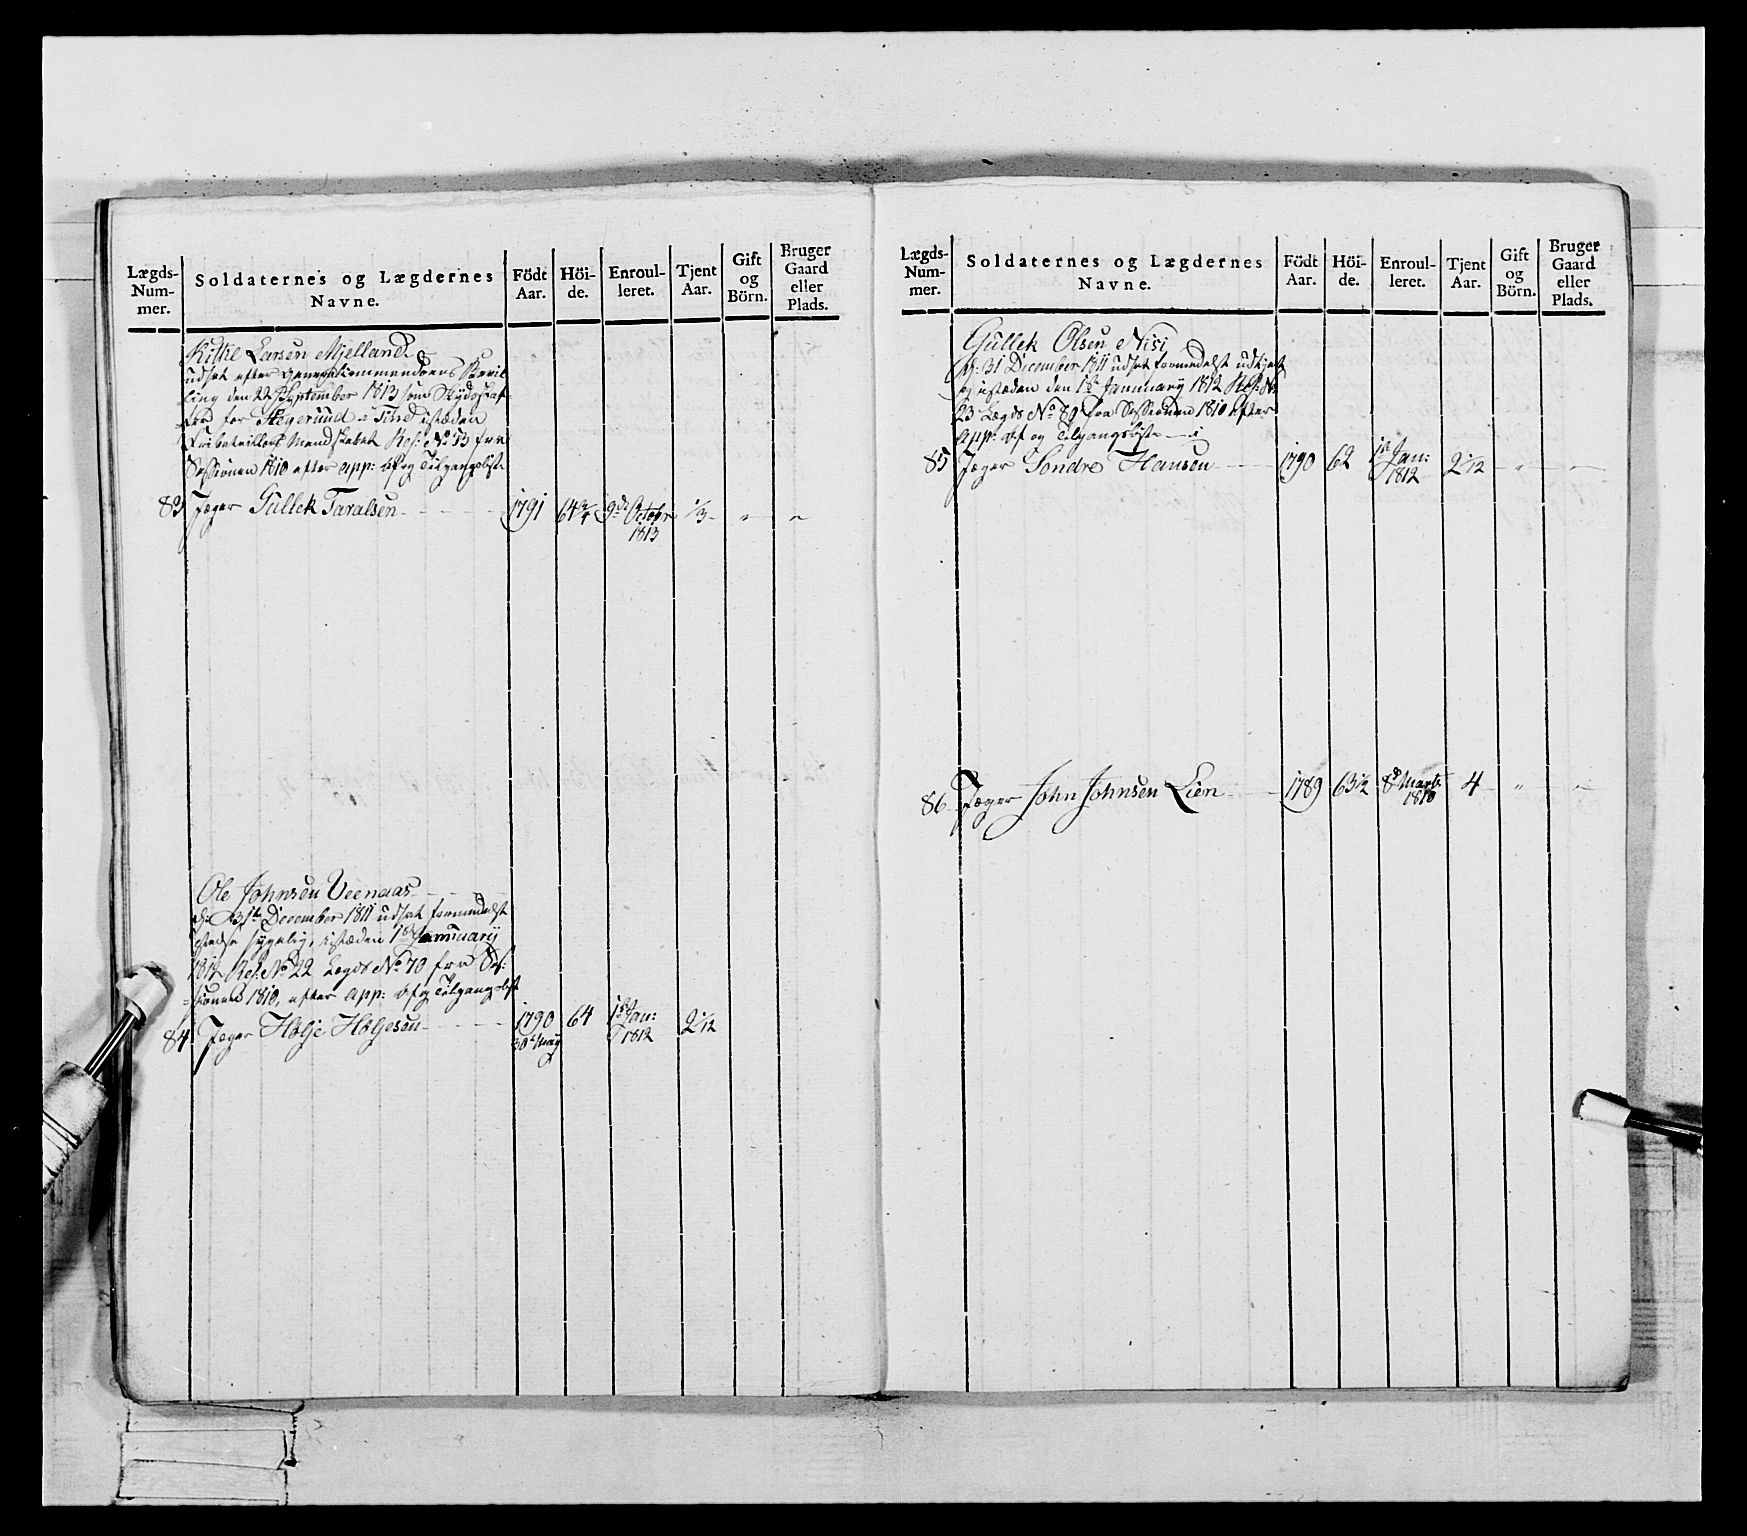 Lægds-
Num-
mer.
Soldaternes og Lægdernes
Navne.
Födt
Aar.
Höi-
de.
Enroul-
leret.
Tjent
Aar.
Gift
og
Börn.
Bruger
Gaard
eller
Plads.
Kittil Larsen Mjelland
udsat efter Generalkommandoens Bevil
ling den 22 September 1813 som Skydsskaf
fer for Hegerund i Tind istæden
Mandskabet Ref: No 53 fra
Sessionen 1810 efter app: Af og Tilgangsliste
83 Jæger Gullek Taralsen 1791 64 3/4 9de Octobr 1/3 " "
1813
Ole Johnsen Veenaas
31te December 1811 udsat formedelst
stedse sygelig, istæden 1ste Januarij
1812 Ref: No 22 Legds No 70 fra Ses:
=sionen 1810, efter app: Af og Tilgangslist
84 Jæger Holje Holjesen 1790 64 1ste Jan: 2 1/12
30te May 1812
Lægds-
Num-
mer.
Soldaternes og Lægdernes
Navne.
Födt
Aar.
Höi-
de.
Enroul-
leret.
Tjent
Aar.
Gift
og
Börn.
Bruger
Gaard
eller
Plads.
Gullek Olsen Nisi
31 December 1811 udsat formedelst udtjent
og istæden den 1ste Januarij 1812 Ref: No
23 Lægds No 80 fra Sessionen 1810 efter
app: Af og Tilgangsliste
85 Jæger Sondre Hansen 1790 62 1ste Jan: 2 1/12 " "
1812
86 Jæger John Johnsen Lien 1789 63 1/2 8de Marts 4 " "
1810